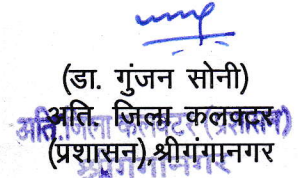 (डा. गुंजन सोनी)
अति. जिला कलक्टर
(प्रशासन),श्रीगंगानगर
अति.जिला कलक्टर (प्रशासन)
श्रीगंगानगर